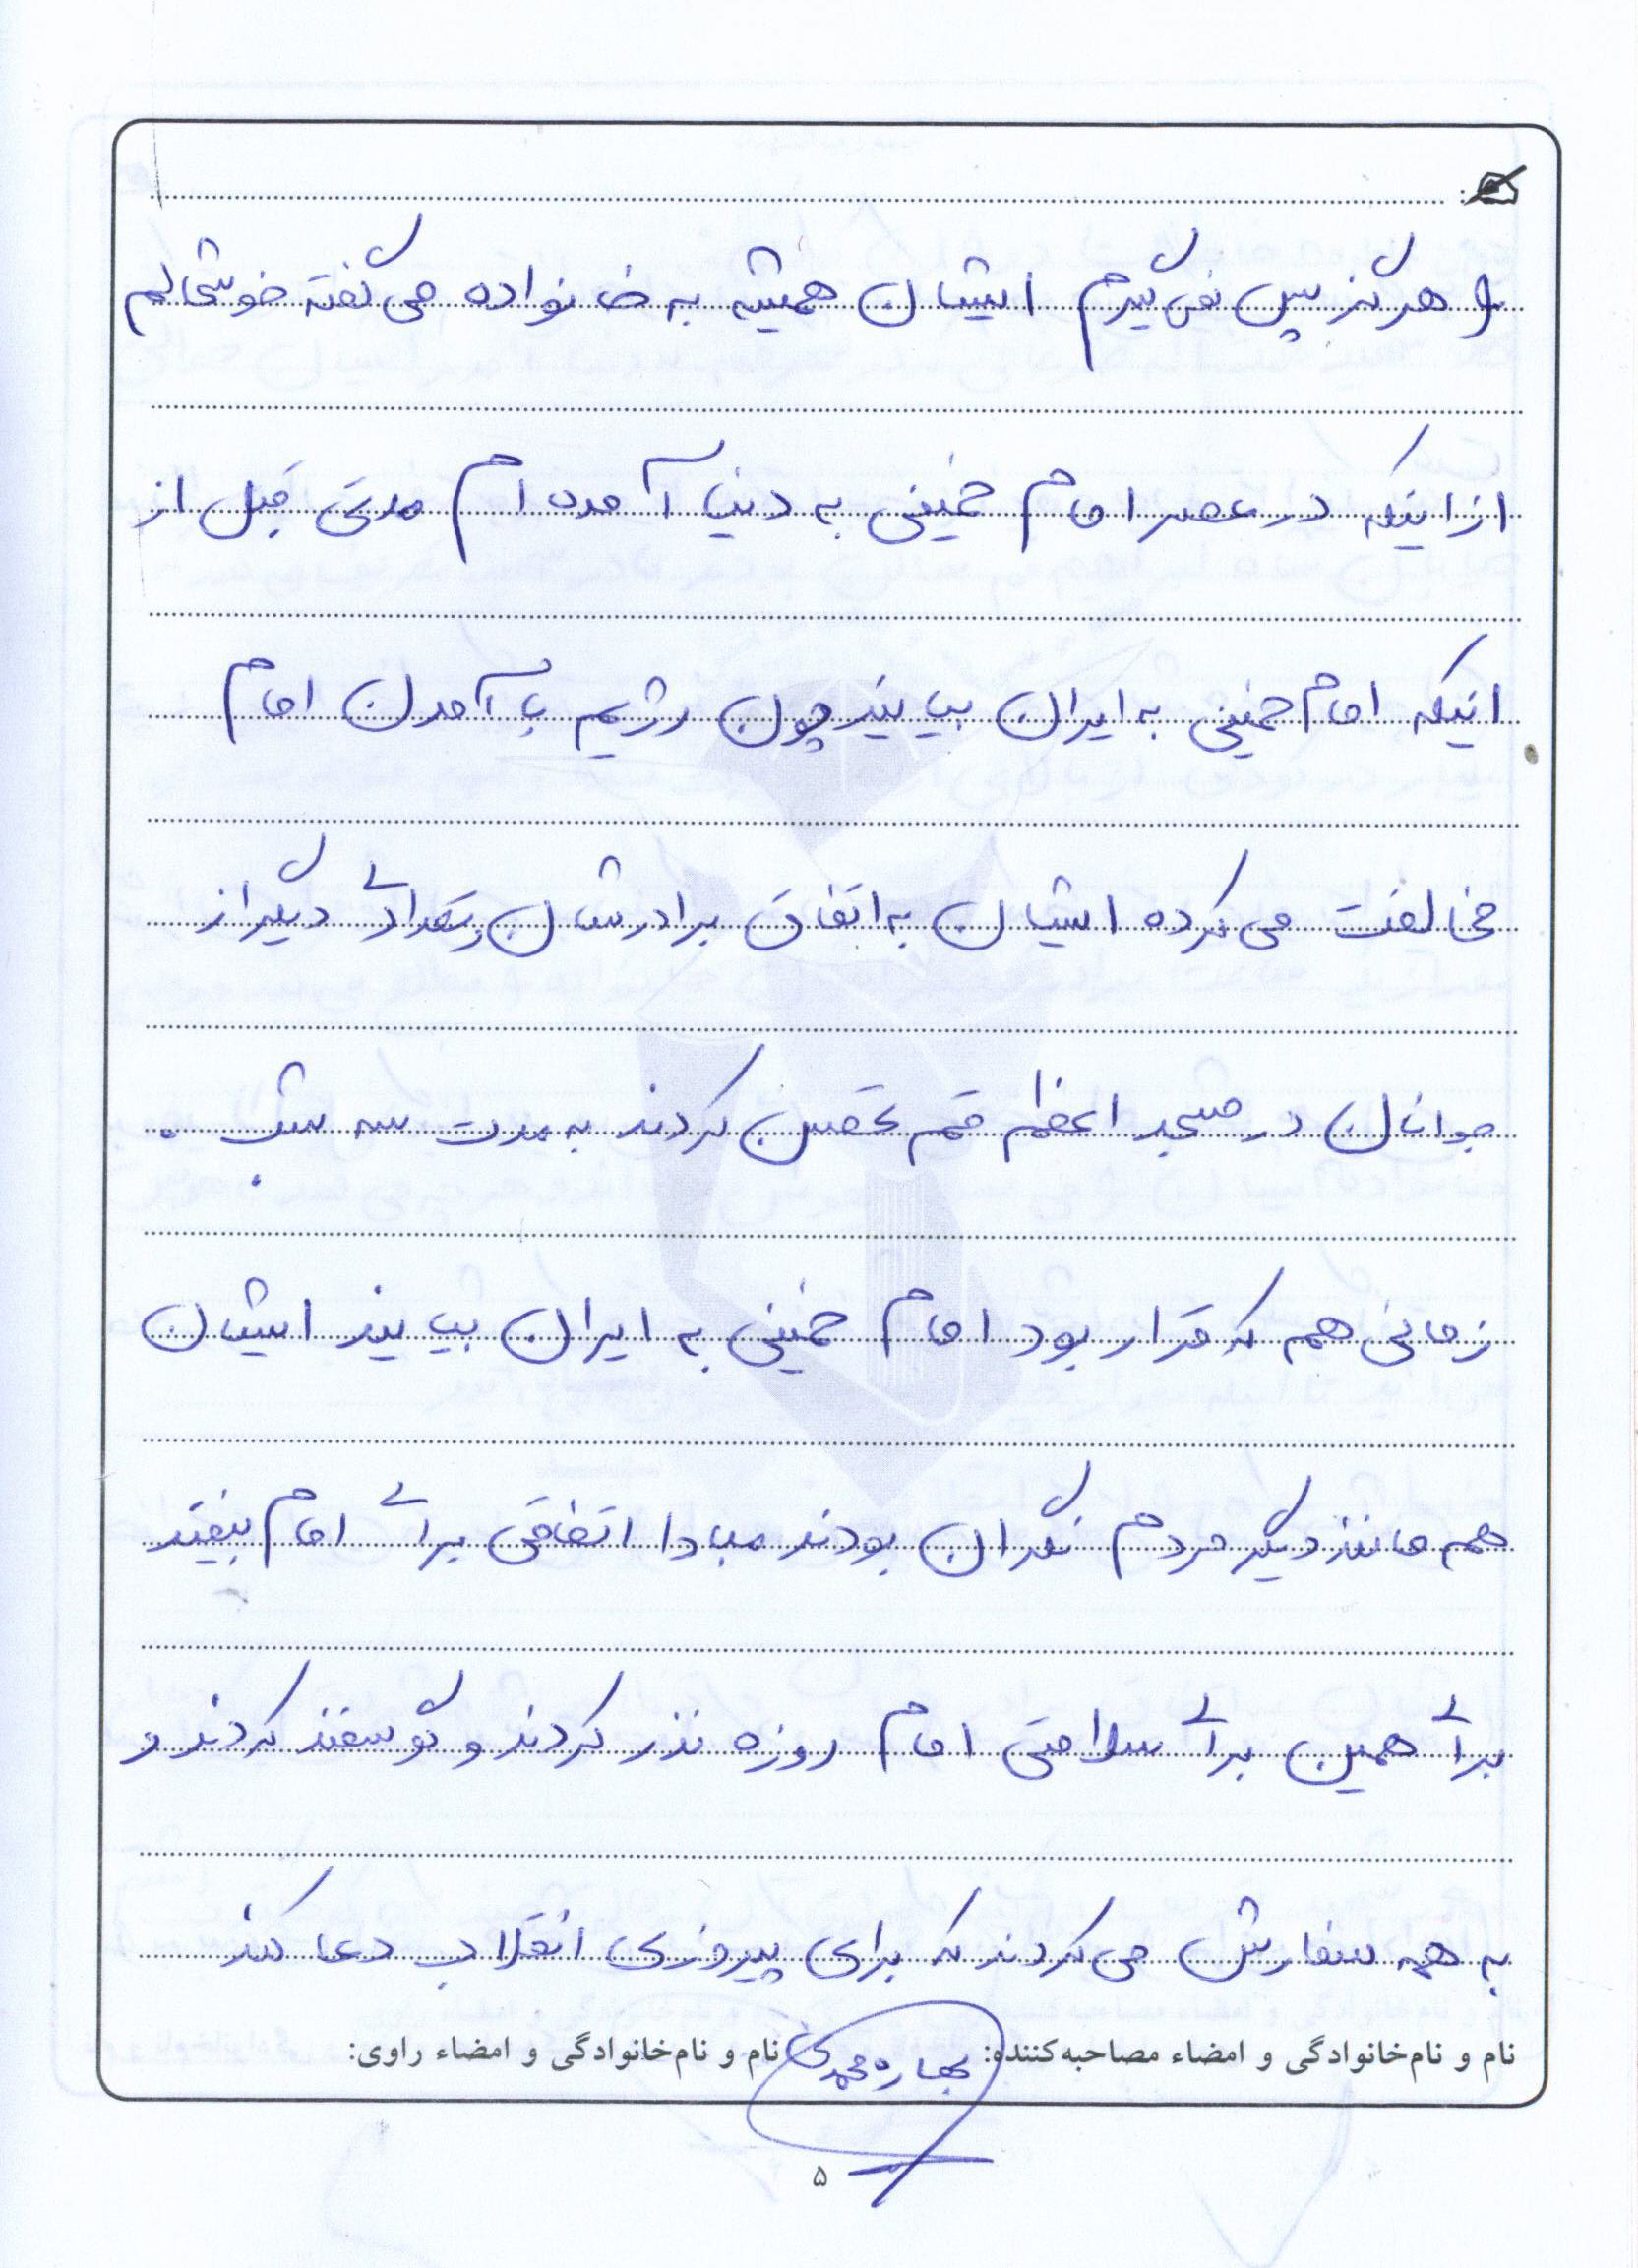 و هرگز پس نمی‌گیرم ایشان همیشه به خانواده می‌گفته خوشحالم
از اینکه در عصر امام خمینی به دنیا آمده ام مدتی قبل از
اینکه امام خمینی به ایران بیایند چون رژیم با آمدن امام
مخالفت می کرده ایشان به اتفاق برادرشان و تعدادی دیگر از
جوانان در مسجد اعظم قم تحصن کردند به مدت سه شب .
زمانی هم که قرار بود امام خمینی به ایران بیایند ایشان
هم مانند دیگر مردم نگران بودند مبادا اتفاقی برای امام بیفتد
برای همین برای سلامتی امام روزه نذر کردند و گوسفند کردند و
به همه سفارش می کردند که برای پیروزی انقلاب دعا کنند
نام و نام‌خانوادگی و امضاء مصاحبه‌کننده: بهاره محمدی نام و نام‌خانوادگی و امضاء راوی:
۵